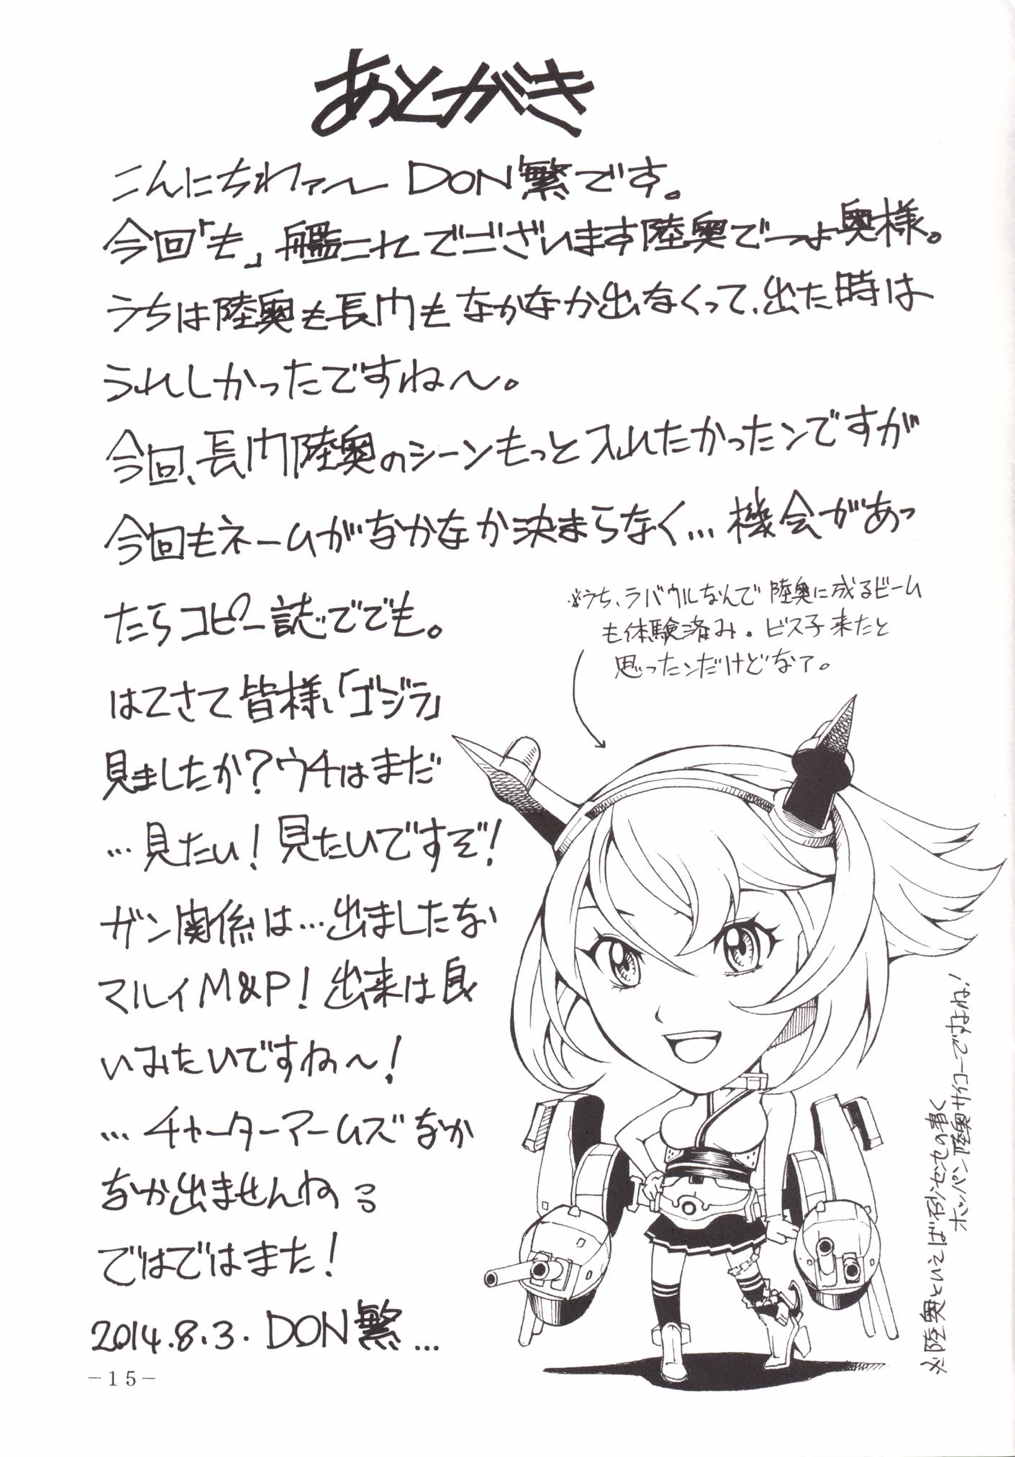 あとがき
こんにちわァ〜 DON繁です。
今回「も」艦これでございます陸奥でっよ奥様。
うちは陸奥も長門もなかなか出なくって、出た時は
うれしかったですね〜。
今回、長門陸奥のシーンもっと入れたかったンですが
今回もネームがなかなか決まらなく…機会があっ
たらコピー誌ででも。
※うち、ラバウルなんで陸奥に成るビーム
も体験済み。ビス子来たと
思ったンだけどなァ。
はてさて皆様、「ゴジラ」
見ましたか?ウチはまだ
…見たい!見たいですぞ!
ガン関係は…出ましたな
マルイM&P!出来は良
いみたいですね〜!
…チャーターアームズなか
なか出ませんねっ
ではではまた!
2014.8.3. DON繁…
※陸奥といえば
センセの書く
ホッパン陸奥サイコーですよね!
−15−